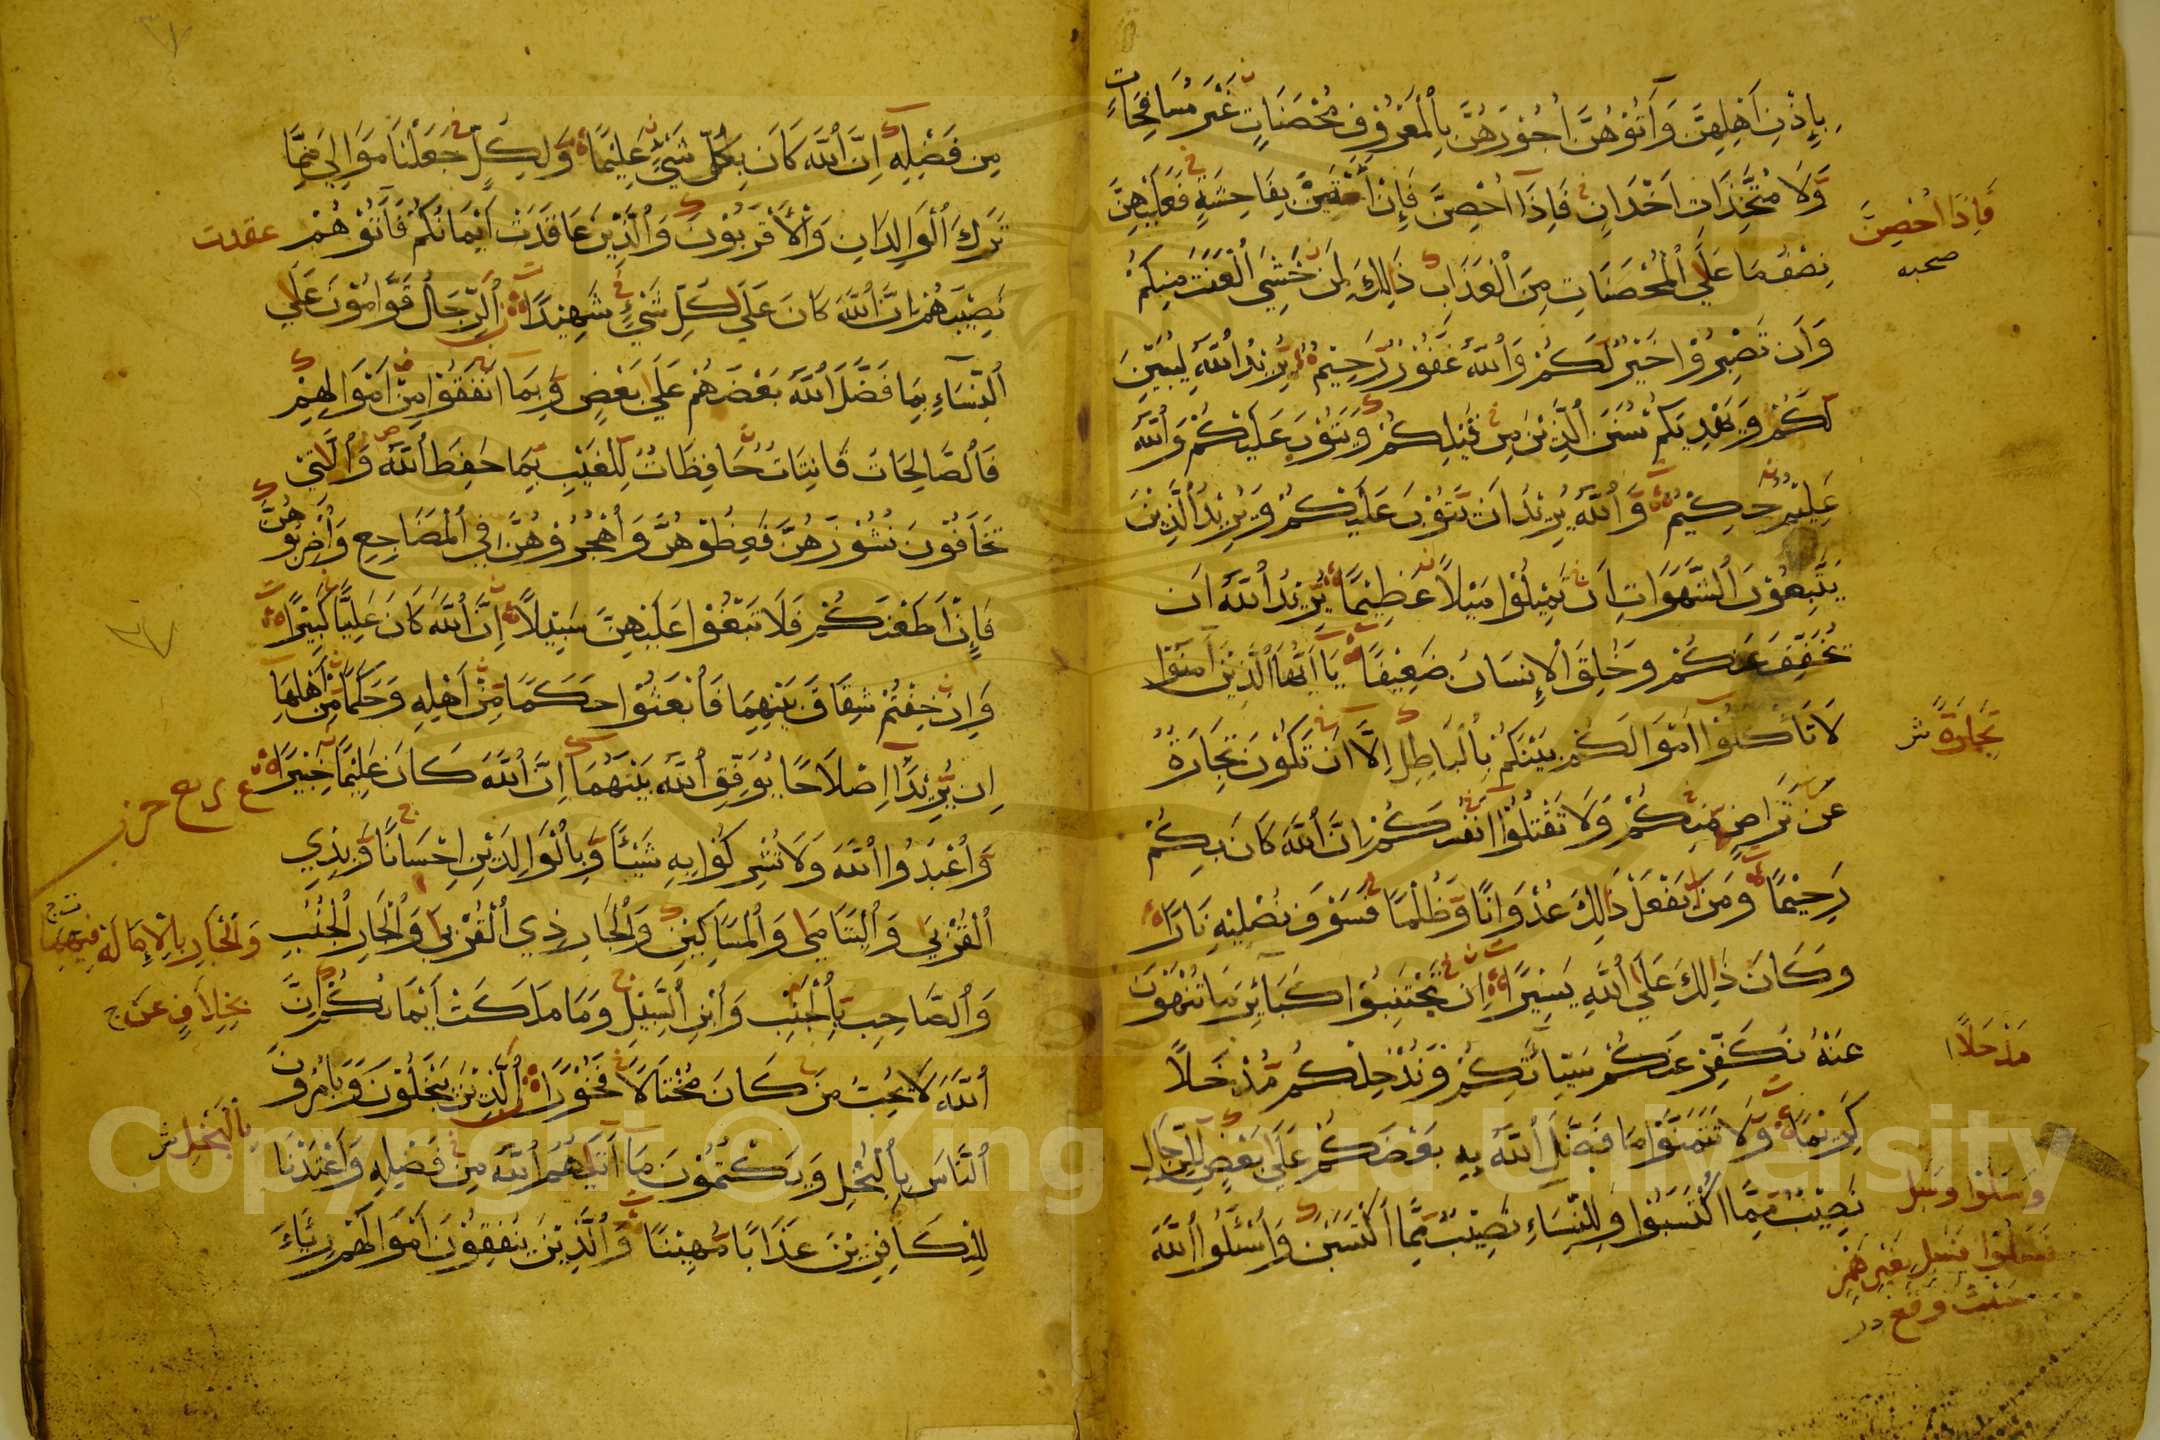 بِإِذْنِ أَهْلِهِنَّ وَآتُوهُنَّ أُجُورَهُنَّ بِالْمَعْرُوفِ مُحْصَنَاتٍ غَيْرَ مُسَافِحَاتٍ
وَلَا مُتَّخِذَاتِ أَخْدَانٍ فَإِذَا أُحْصِنَّ فَإِنْ أَتَيْنَ بِفَاحِشَةٍ فَعَلَيْهِنَّ
فَإِذَا أُحْصِنَّ
صحبه
نِصْفُ مَا عَلَى الْمُحْصَنَاتِ مِنَ الْعَذَابِ ذَالِكَ لِمَنْ خَشِيَ الْعَنَتَ مِنكُمْ
وَأَن تَصْبِرُوا خَيْرٌ لَكُمْ وَاللَّهُ غَفُورٌ رَحِيمٌ يُرِيدُ اللَّهُ لِيُبَيِّنَ
لَكُمْ وَيَهْدِيَكُمْ سُنَنَ الَّذِينَ مِن قَبْلِكُمْ وَيَتُوبَ عَلَيْكُمْ وَاللَّهُ
عَلِيمٌ حَكِيمٌ وَاللَّهُ يُرِيدُ أَن يَتُوبَ عَلَيْكُمْ وَيُرِيدُ الَّذِينَ
يَتَّبِعُونَ الشَّهَوَاتِ أَن تَمِيلُوا مَيْلًا عَظِيمًا يُرِيدُ اللَّهُ أَن
يُخَفِّفَ عَنكُمْ وَخُلِقَ الْإِنسَانُ ضَعِيفًا يَا أَيُّهَا الَّذِينَ آمَنُوا
لَا تَأْكُلُوا أَمْوَالَكُم بَيْنَكُمْ بِالْبَاطِلِ إِلَّا أَن تَكُونَ تِجَارَةٌ
تِجَارَةً ثر
عَن تَرَاضٍ مِنكُمْ وَلَا تَقْتُلُوا أَنفُسَكُمْ إِنَّ اللَّهَ كَانَ بِكُمْ
رَحِيمًا وَمَن يَفْعَلْ ذَالِكَ عُدْوَانًا وَظُلْمًا فَسَوْفَ نُصْلِيهِ نَارًا
وَكَانَ ذَالِكَ عَلَى اللَّهِ يَسِيرًا إِن تَجْتَنِبُوا كَبَائِرَ مَا تُنْهَوْنَ
عَنْهُ نُكَفِّرْ عَنكُمْ سَيِّئَاتِكُمْ وَنُدْخِلْكُم مُدْخَلًا
مَدْخَلًا ا
كَرِيمًا وَلَا تَتَمَنَّوْا مَا فَضَّلَ اللَّهُ بِهِ بَعْضَكُمْ عَلَى بَعْضٍ لِلرِّجَالِ
نَصِيبٌ مِمَّا اكْتَسَبُوا وَلِلنِّسَاءِ نَصِيبٌ مِمَّا اكْتَسَبْنَ وَاسْئَلُوا اللَّهَ
وَسَلُوا وَسَل
بغير همز
حيث وقع در
مِن فَضْلِهِ إِنَّ اللَّهَ كَانَ بِكُلِّ شَيْءٍ عَلِيمًا وَلِكُلٍّ جَعَلْنَا مَوَالِيَ مِمَّا
تَرَكَ الْوَالِدَانِ وَالْأَقْرَبُونَ وَالَّذِينَ عَاقَدَتْ أَيْمَانُكُمْ فَآتُوهُمْ
عقدت
نَصِيبَهُمْ إِنَّ اللَّهَ كَانَ عَلَى كُلِّ شَيْءٍ شَهِيدًا الرِّجَالُ قَوَّامُونَ عَلَى
النِّسَاءِ بِمَا فَضَّلَ اللَّهُ بَعْضَهُمْ عَلَى بَعْضٍ وَبِمَا أَنفَقُوا مِنْ أَمْوَالِهِمْ
فَالصَّالِحَاتُ قَانِتَاتٌ حَافِظَاتٌ لِلْغَيْبِ بِمَا حَفِظَ اللَّهُ وَالَّتِي
تَخَافُونَ نُشُوزَهُنَّ فَعِظُوهُنَّ وَاهْجُرُوهُنَّ فِي الْمَضَاجِعِ وَاضْرِبُوهُنَّ
فَإِنْ أَطَعْنَكُمْ فَلَا تَبْغُوا عَلَيْهِنَّ سَبِيلًا إِنَّ اللَّهَ كَانَ عَلِيًّا كَبِيرًا
وَإِنْ خِفْتُمْ شِقَاقَ بَيْنِهِمَا فَابْعَثُوا حَكَمًا مِنْ أَهْلِهِ وَحَكَمًا مِنْ أَهْلِهَا
إِن يُرِيدَا إِصْلَاحًا يُوَفِّقِ اللَّهُ بَيْنَهُمَا إِنَّ اللَّهَ كَانَ عَلِيمًا خَبِيرًا
ربع حزب
وَاعْبُدُوا اللَّهَ وَلَا تُشْرِكُوا بِهِ شَيْئًا وَبِالْوَالِدَيْنِ إِحْسَانًا وَبِذِي
الْقُرْبَى وَالْيَتَامَى وَالْمَسَاكِينِ وَالْجَارِ ذِي الْقُرْبَى وَالْجَارِ الْجُنُبِ
وَالْجَارِ بِالْإِمَالَةِ فِيهِمَا
وَالصَّاحِبِ بِالْجَنْبِ وَابْنِ السَّبِيلِ وَمَا مَلَكَتْ أَيْمَانُكُمْ إِنَّ
بِخِلَافٍ عَنْ ج
اللَّهَ لَا يُحِبُّ مَن كَانَ مُخْتَالًا فَخُورًا الَّذِينَ يَبْخَلُونَ وَيَأْمُرُونَ
بِالْبَخَلِ ثر
النَّاسَ بِالْبُخْلِ وَيَكْتُمُونَ مَا آتَاهُمُ اللَّهُ مِن فَضْلِهِ وَأَعْتَدْنَا
لِلْكَافِرِينَ عَذَابًا مُهِينًا وَالَّذِينَ يُنفِقُونَ أَمْوَالَهُمْ رِئَاءَ
Copyright © King Saud University